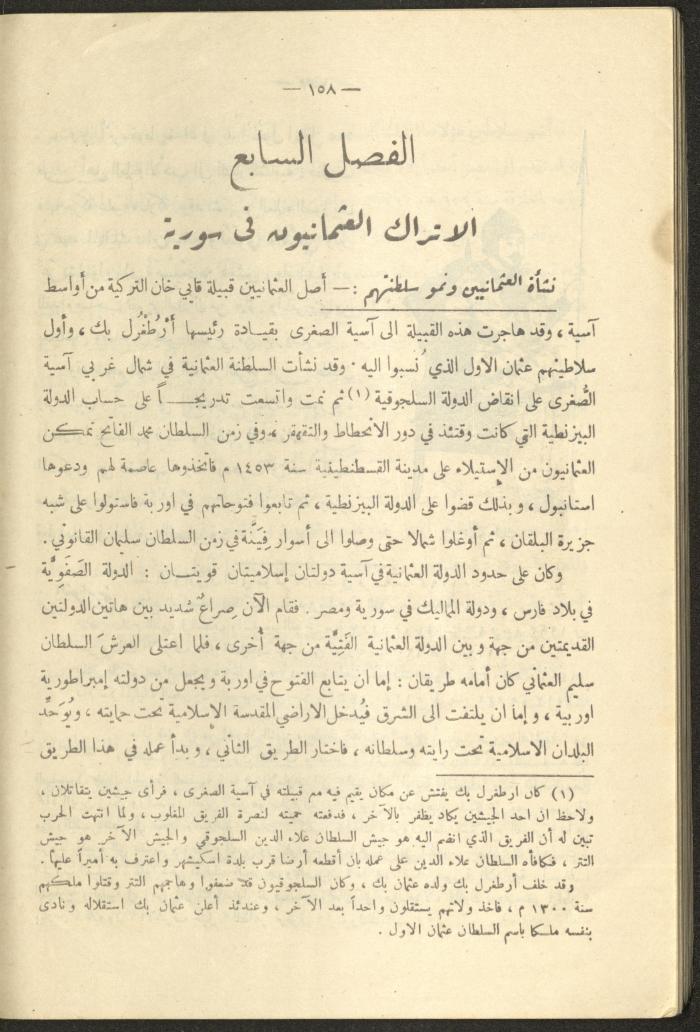 — ١٥٨ —
الفصل السابع
الاتراك العثمانيون في سورية
نشأة العثمانيين ونمو سلطنتهم : — أصل العثمانيين قبيلة قابي خان التركية من أواسط
آسية ، وقد هاجرت هذه القبيلة الى آسية الصغرى بقيادة رئيسها أَرْطُغْرُل بك ، وأول
سلاطينهم عثمان الاول الذي نُسبوا اليه . وقد نشأت السلطنة العثمانية في شمال غربي آسية
الصُّغرى على انقاض الدولة السلجوقية (١) ثم نمت واتسعت تدريجـــاً على حساب الدولة
البيزنطية التي كانت وقتئذ في دور الانحطاط والتقهقر ، وفي زمن السلطان محمد الفاتح تمكن
العثمانيون من الإستيلاء على مدينة القسطنطينية سنة ١٤٥٣ م فاتخذوها عاصمة لهم ودعوها
استانبول ، وبذلك قضوا على الدولة البيزنطية ، ثم تابعوا فتوحاتهم في اوربة فاستولوا على شبه
جزيرة البلقان ، ثم أوغلوا شمالا حتى وصلوا الى أسوار فِيَنَّة في زمن السلطان سليمان القانوني .
وكان على حدود الدولة العثمانية في آسية دولتان إسلاميتان قويتـــان : الدولة الصَفَوِيَّة
في بلاد فارس ، ودولة المماليك في سورية ومصر . فقام الآن صِراعٌ شديد بين هاتين الدولتين
القديمتين من جهة وبين الدولة العثمانية الفَتِيَّة من جهة أُخرى ، فلما اعتلى العرشَ السلطان
سليم العثماني كان أمامه طريقان : إما ان يتابع الفتوح في اوربة ويجعل من دولته إمبراطورية
اوربية ، وإما ان يلتفت الى الشرق فيُدخل الاراضي المقدسة الإسلامية تحت حمايته ، ويُوَحِّد
البلدان الاسلامية تحت رايته وسلطانه ، فاختار الطريق الثاني ، وبدأ عمله في هذا الطريق
(١) كان ارطغرل بك يفتش عن مكان يقيم فيه مع قبيلته في آسية الصغرى ، فرأى جيشين يتقاتلان ،
ولاحظ ان احد الجيشين يكاد يظفر بالآخر ، فدفعته حميته لنصرة الفريق المغلوب ، ولما انتهت الحرب
تبين له أن الفريق الذي انضم اليه هو جيش السلطان علاء الدين السلجوقي والجيش الآخر هو جيش
التتر ، فكافأه السلطان علاء الدين على عمله بان أقطعه أرضا قرب بلدة اسكيشهر واعترف به أميراً عليها .
وقد خلف أرطغرل بك ولده عثمان بك ، وكان السلجوقيون قد ضعفوا وهاجمهم التتر وقتلوا ملكهم
سنة ١٣٠٠ م ، فاخذ ولاتهم يستقلون واحداً بعد الآخر ، وعندئذ أعلن عثمان بك استقلاله ونادى
بنفسه ملكا باسم السلطان عثمان الاول .